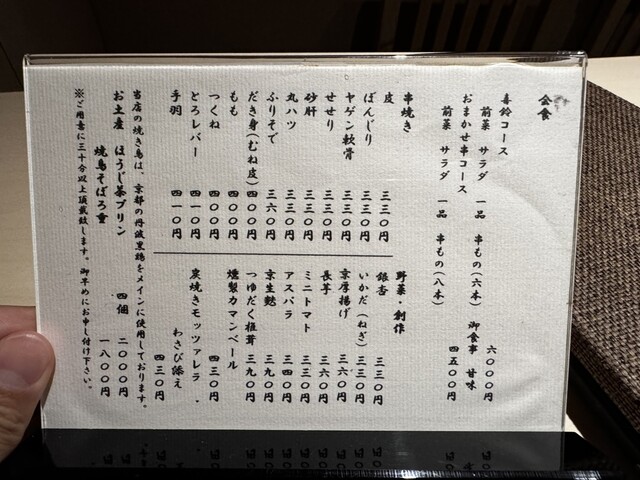 会食
喜鈴コース
前菜 サラダ 一品 串もの(六本) 御食事 甘味
六〇〇〇円
おまかせ串コース
前菜 サラダ 一品 串もの(八本)
四五〇〇円
串焼き
皮 三三〇円
ぼんじり 三三〇円
ヤゲン軟骨 三三〇円
せせり 三三〇円
砂肝 三三〇円
丸ハツ 三三〇円
ふりそで 三六〇円
だき身(むね皮) 四〇〇円
もも 四〇〇円
つくね 四〇〇円
とろレバー 四一〇円
手羽 四一〇円
野菜・創作
銀杏 三三〇円
いかだ(ねぎ) 三三〇円
京厚揚げ 三六〇円
長芋 三六〇円
ミニトマト 三三〇円
アスパラ 三四〇円
京生麩 三九〇円
つゆだく椎茸 三九〇円
燻製カマンベール 四三〇円
炭焼きモッツァレラ
わさび添え 四三〇円
当店の焼き鳥は、京都の丹波黒鶏をメインに使用しております。
お土産 ほうじ茶プリン 四個 二〇〇〇円
焼鳥そぼろ重 一八〇〇円
※ご用意に三十分以上頂戴致します。御早めにお申し付け下さい。